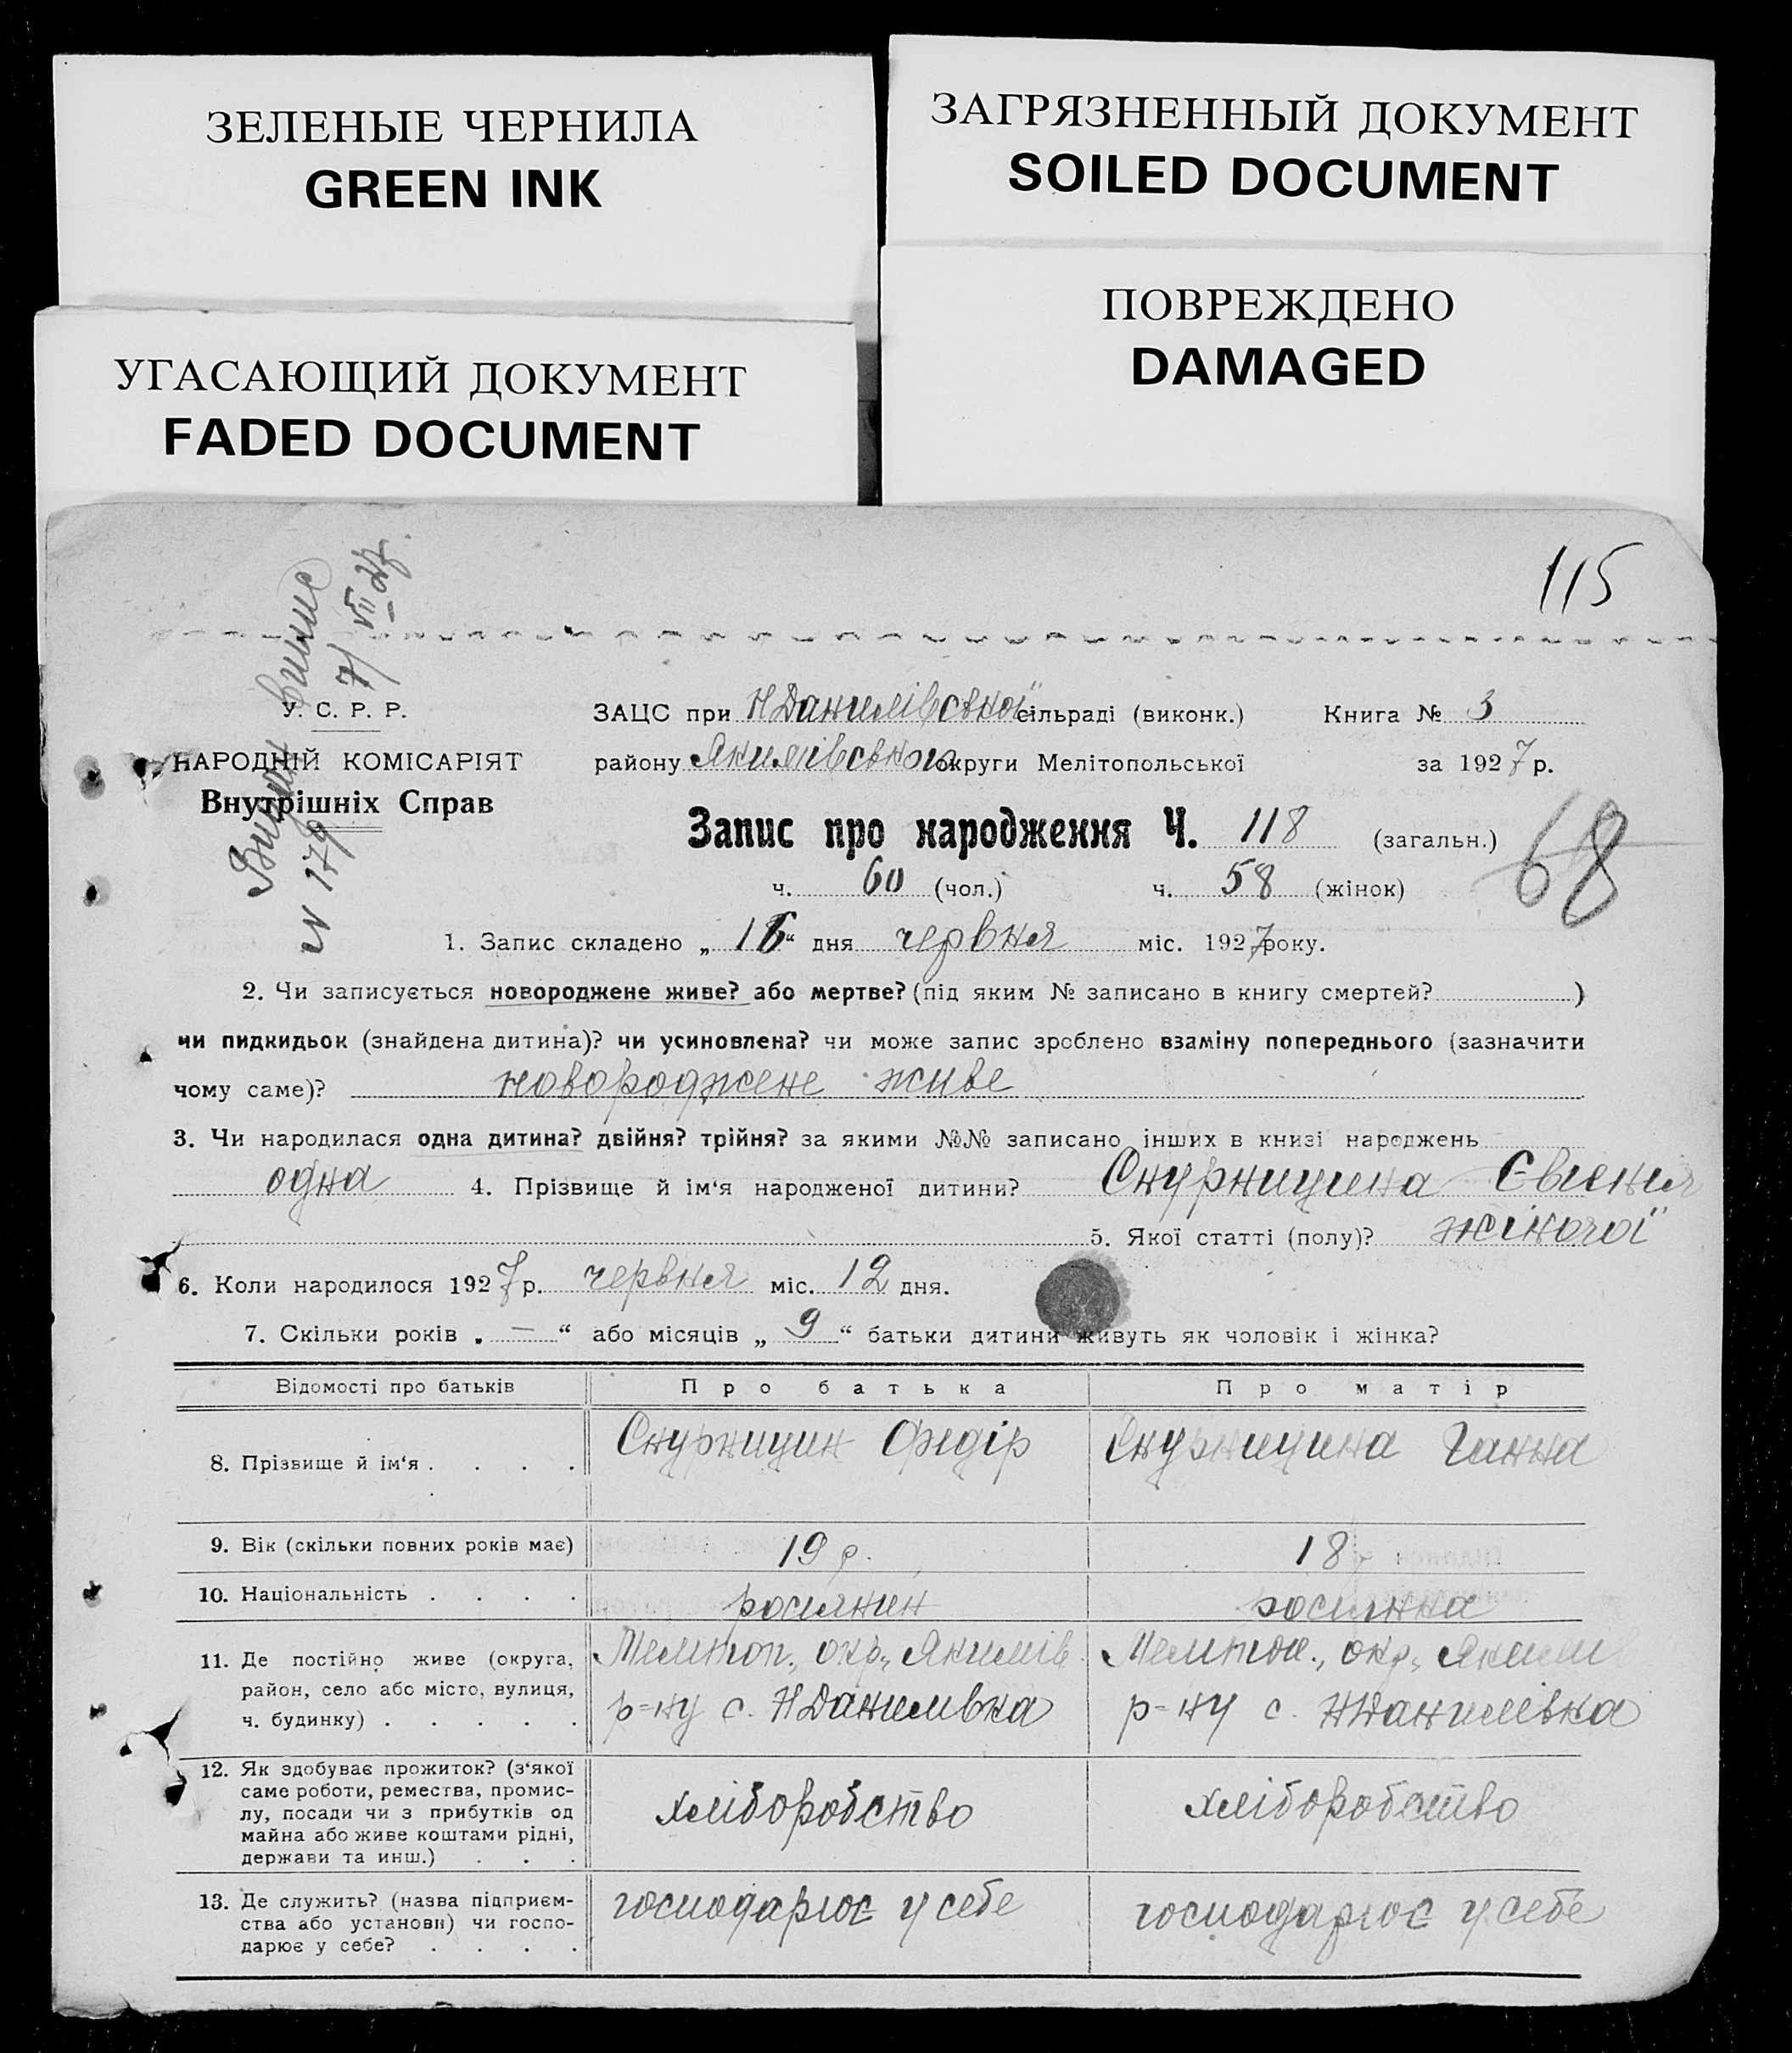 ЗЕЛЕНЫЕ ЧЕРНИЛА
GREEN INK
ЗАГРЯЗНЕННЫЙ ДОКУМЕНТ
SOILED DOCUMENT
ПОВРЕЖДЕНО
DAMAGED
УГАСАЮЩИЙ ДОКУМЕНТ
FADED DOCUMENT
115
Видан випис
№ 179 7/VII 27.
У. С. Р. Р.
НАРОДНІЙ КОМІСАРІЯТ
Внутрішніх Справ
ЗАЦС при НДанилівської сільраді (виконк.) Книга № 3
району Якимівського округи Мелітопольської за 1927 р.
Запис про народження Ч. 118 (загальн.)
68
ч. 60 (чол.) ч. 58 (жінок)
1. Запис складено „ 16 “ дня червня міс. 1927 року.
2. Чи записується новороджене живе? або мертве? (під яким № записано в книгу смертей? )
чи пидкидьок (знайдена дитина)? чи усиновлена? чи може запис зроблено взаміну попереднього (зазначити
чому саме)? новороджене живе
3. Чи народилася одна дитина? двійня? трійня? за якими №№ записано інших в книзі народжень
одна 4. Прізвище й ім‘я народженої дитини? Скурницина Євгенія
5. Якої статті (полу)? жіночої
6. Коли народилося 1927 р. червня міс. 12 дня.
7. Скільки років „ — “ або місяців „ 9 “ батьки дитини живуть як чоловік і жінка?
Відомості про батьків Про батька Про матір
8. Прізвище й ім‘я . . . . Скурницин Федір Скурницина Ганна
9. Вік (скільки повних років має) 19 р. 18 р
10. Національність . . . . росіянин росіянка
11. Де постійно живе (округа, Мелитоп., окр., Якимів Мелитоп., окр., Якимів
район, село або місто, вулиця, р-ну с. НДанилівка р-ну с. НДанилівка
ч. будинку) . . . . .
12. Як здобуває прожиток? (з‘якої
саме роботи, ремества, промис-
лу, посади чи з прибутків од хліборобство хліборобство
майна або живе коштами рідні,
держави та инш.) . . .
13. Де служить? (назва підприєм- господарює у себе господарює у себе
ства або установи) чи госпо-
дарює у себе? . . . .